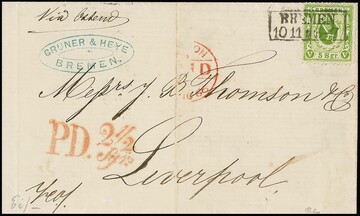 Via Ostend
BREMEN
10 11
5 Sgr.
GRUNER & HEYE
BREMEN.
Messrs J. B. Thomson & Co
PD. 2½
Sgr.
Liverpool.